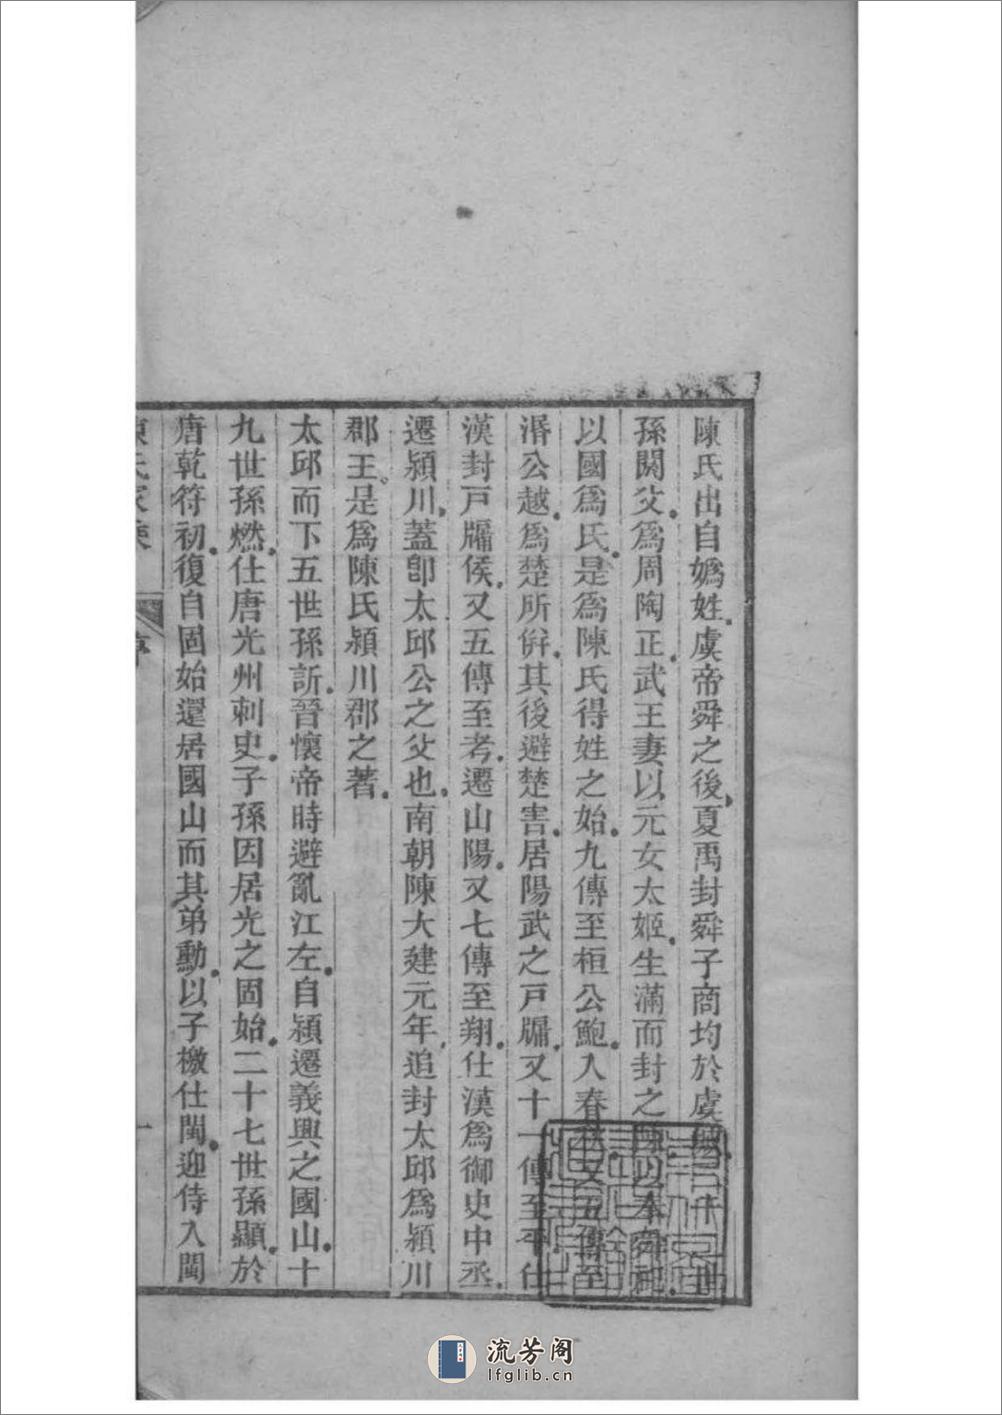 陳氏出自嬀姓虞帝舜之後夏禹封舜子商均於虞三十二世
孫閼父爲周陶正武王妻以元女太姬生滿而封之陳以奉舜祀
以國爲氏是爲陳氏得姓之始九傳至桓公鮑入春秋又五傳至
湣公越爲楚所倂其後避楚害居陽武之戸牖又十一傳至平仕
漢封戸牖侯又五傳至考遷山陽又七傳至翔仕漢爲御史中丞
遷潁川蓋卽太邱公之父也南朝陳大建元年追封太邱爲潁川
郡王是爲陳氏潁川郡之著
太邱而下五世孫訢晉懷帝時避亂江左自潁遷義興之國山十
九世孫燃仕唐光州刺史子孫因居光之固始二十七世孫顯於
唐乾符初復自固始還居國山而其弟勳以子檄仕閩迎侍入閩
陳氏家乘 序 一
流芳阁
lfglib.cn